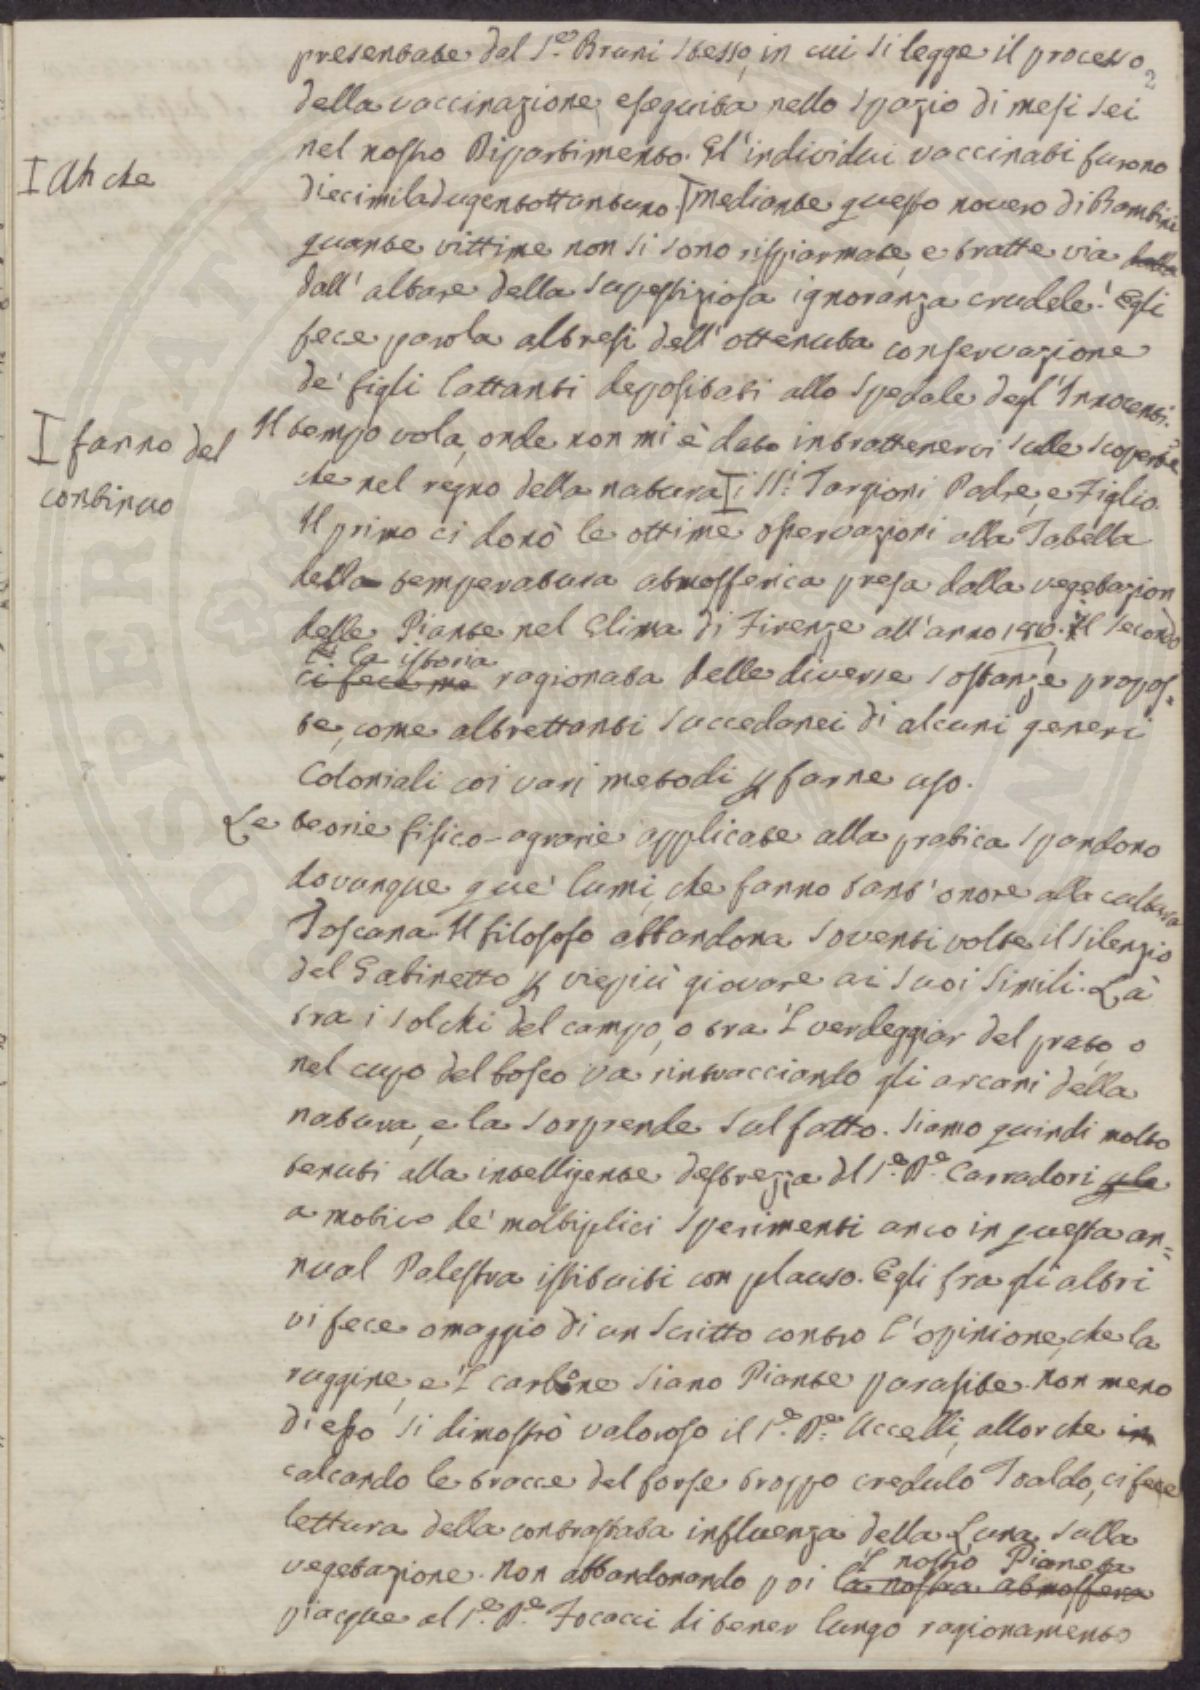 presentate dal S.r Bruni stesso, in cui si legge il processo
2
della vaccinazione eseguita nello spazio di mesi sei
nel nostro Dipartimento. Gl'individui vaccinati furono
I Ah che
diecimiladugentottantuno I mediante questo novero di Bambini
quante vittime non si sono risparmate, e tratte via dalla
dall'altare della supestiziosa ignoranza crudele! Egli
fece parola altresì dell'ottenuta conservazione
de' figli lattanti depositati allo Spedale degl'Innocenti.
I fanno del
continuo
Il tempo vola, onde non mi è dato intrattenervi sulle scoperte
che nel regno della natura I i SS.i Targioni Padre, e Figlio.
Il primo ci donò le ottime osservazioni alla Tabella
della temperatura atmosferica presa dalla vegetazion
delle Piante nel Clima di Firenze all'anno 1810. Il secondo
la istoria
ci fece ragionata delle diverse sostanze propos-
te, come altrettanti succedanei di alcuni generi
Coloniali coi varj metodi p farne uso.
Le teorie fisico-agrarie applicate alla pratica spandono
dovunque que' lumi, che fanno tant'onore alla cultura
Toscana. Il filosofo abbandona soventi volte il silenzio
del Gabinetto p viepiù giovare ai suoi simili. Là
tra i solchi del campo, o tra 'l verdeggiar del prato, o
nel cupo del bosco va rintracciando gli arcani della
natura, e la sorprende sul fatto. Siamo quindi molto
tenuti alla intelligente destrezza del S.e P.e Carradori p la
a motivo de' moltiplici sperimenti anco in questa an=
nual Palestra istituiti con plauso. Egli fra gli altri
vi fece omaggio di un scritto contro l'opinione, che la
ruggine, e 'l carbone siano Piante parasite. Non meno
di esso si dimostrò valoroso il S.e P.e Uccelli, allorche in
calcando le tracce del forse troppo credulo Toaldo, ci fece
lettura della contrastata influenza della Luna sulla
'l nostro Pianeta
vegetazione. Non abbandonando poi la nostra atmosfera
piacque al S.e P.e Focacci di tener lungo ragionamento